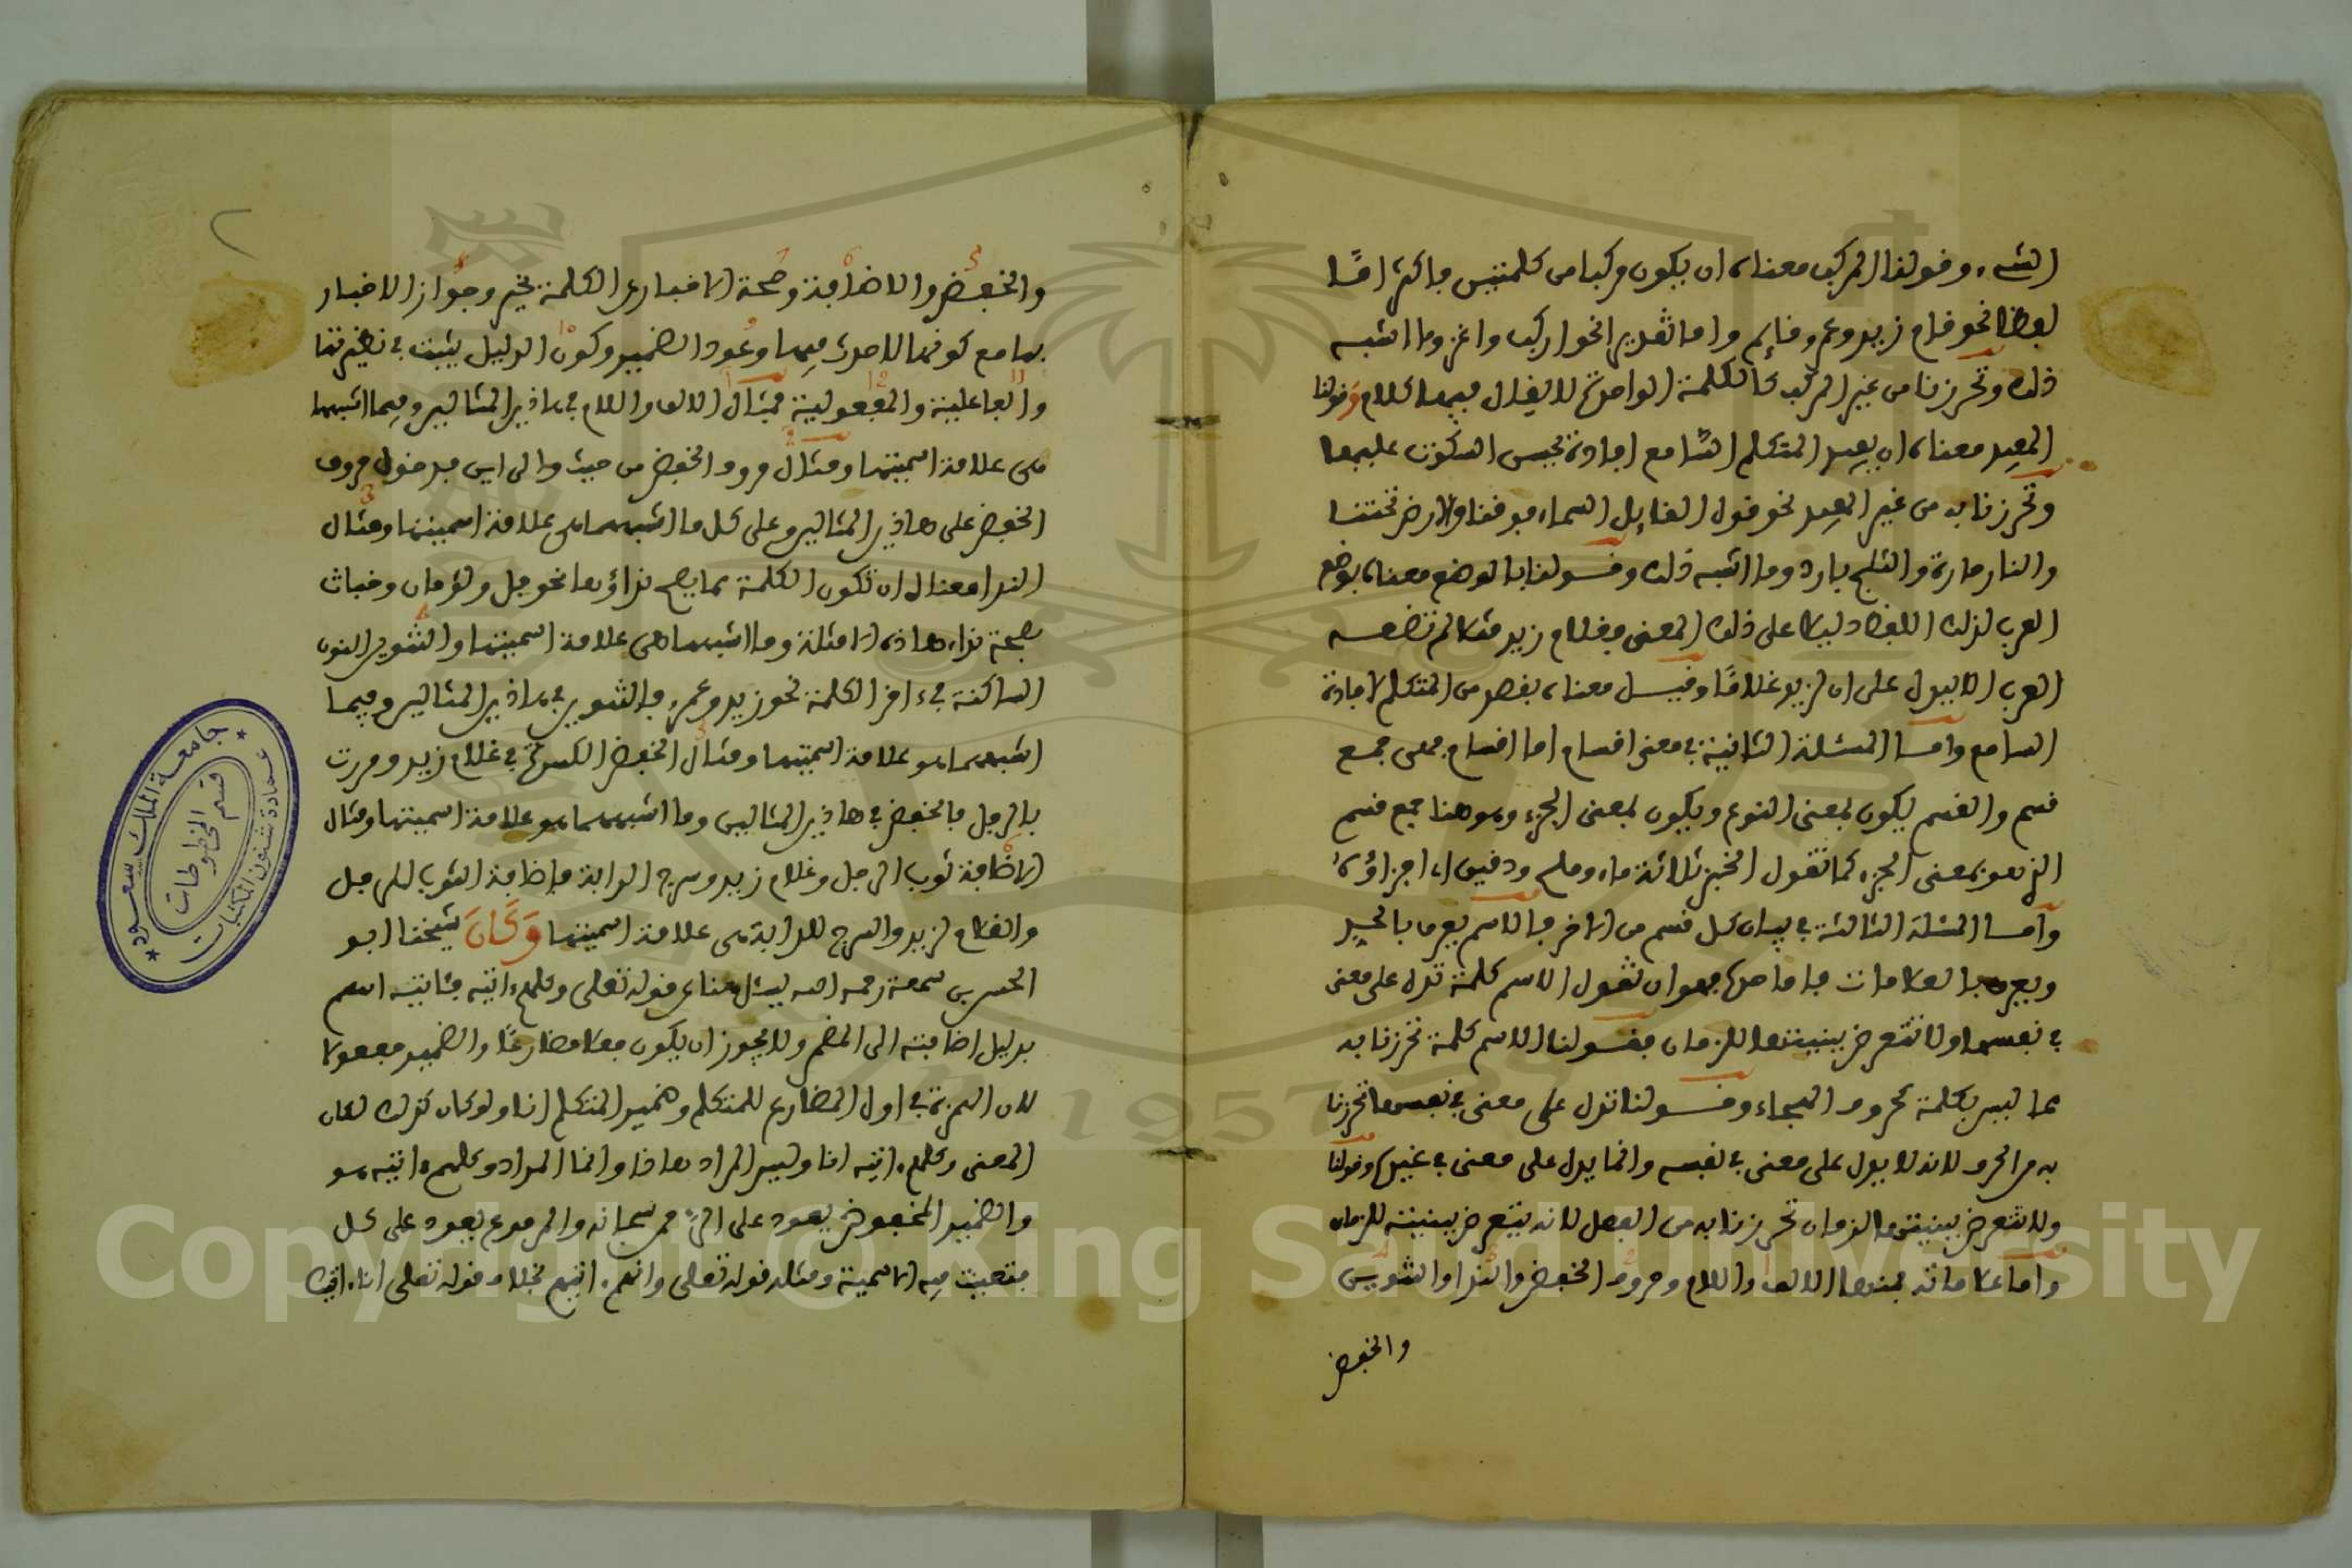 الشيء وقولنا المركب معناه ان يكون مركبا من كلمتين فاكثر امّا
لفظا نحو قام زيد وعمرو قايم واما تقديرا نحو اركب واغز وما اشبه
ذلك وتحرزنا من غير المركب كالكلمة الواحدة لا يقال فيها كلام وقولنا
المفيد معناه ان يفيد المتكلم السامع افادة يحسن السكوت عليها
وتحرزنا به من غير المفيد نحو قول القايل السماء فوقنا والارض تحتنا
والنار حارة والثلج بارد وما اشبه ذلك وقولنا بالوضع معناه بوضع
العرب لذلك اللفظ دليلا على ذلك المعنى فغلام زيد مثلا لم تضعه
العرب الا ليدل على ان لزيد غلامًا وقيل معناه بقصد من المتكلم لافادة
السامع واما المسئلة الثانية في معنى اقسام اما اقسام فهي جمع
قسم والقسم يكون بمعنى النوع ويكون بمعنى الجزء وهو هنا جمع قسم
الذي هو بمعنى الجزء كما تقول الخبز ثلاثة ماء وملح ودقيق اي اجزاؤه
واما المسئلة الثالثة في بيان كل قسم من الاخر فالاسم يعرف بالحد
ويعرف بالعلامات فاما حده فهو ان تقول الاسم كلمة تدل على معنى
في نفسها ولا تتعرض ببنيتها للزمان فقولنا الاسم كلمة تحرزنا به
مما ليس بكلمة كحروف الهجاء وقولنا تدل على معنى في نفسها تحرزنا
به من الحرف لانه لا يدل على معنى في نفسه وانما يدل على معنى في غيره وقولنا
ولا تتعرض ببنيتها للزمان تحرزنا به من الفعل لانه يتعرض ببنيته للزمان
واما علاماته فمنها الالف واللام وحروف الخفض والندا والتنوين
والخفض
والخفض والاضافة وصحة الاخبار عن الكلمة بخبر وجواز الاخبار
بها مع كونها لاحدث فيها وعود الضمير وكون الدليل يثبت في نظيرتها
والفاعلية والمفعولية فمثال الالف واللام في هاذين المثالين وفيما اشبهها
هي علامة اسميتها ومثال حروف الخفض من حيث والى اين فدخول حروف
الخفض على هاذين المثالين وعلى كل ما اشبههما هي علامة اسميتها ومثال
الندا معناه ان تكون الكلمة مما يصح نداؤها نحو فل ولؤمان وخباث
فصحة نداء هاذه الامثلة وما اشبهها هي علامة اسميتها والتنوين النون
الساكنة في ءاخر الكلمة نحو زيد وعمرو فالتنوين في هاذين المثالين وفيما
اشبههما هو علامة اسميتها ومثال الخفض الكسرة في غلام زيد ومررت
بالرجل فالخفض في هاذين المثالين وما اشبههما هو علامة اسميتها ومثال
الاضافة ثوب الرجل وغلام زيد وسرج الدابة فاضافة الثوب للرجل
والغلام لزيد والسرج للدابة هي علامة اسميتها وكان شيخنا ابو
الحسن بن سمعة رحمه الله يسئل هنا عن قوله تعلى وكلهم ءاتيه فئاتيه اسم
بدليل اضافته الى المضمر ولا يجوز ان يكون فعلا مضارعًا والضمير مفعولا
لان الهمزة في اول المضارع للمتكلم وضمير المتكلم انا ولو كان كذلك لكان
المعنى وكلهم ءاتيه انا وليس المراد هاذا وانما المراد وكلهم ءاتيه هو
والضمير المخفوض يعود على الرحمن سبحانه والمرفوع يعود على كل
فتعينت فيه الاسمية ومثله قوله تعلى وانهم ءاتيهم بخلاف قوله تعلى انا ءاتيك
جامعة الملك سعود
عمادة شئون المكتبات
قسم المخطوطات
1957
Copyright © King Saud University